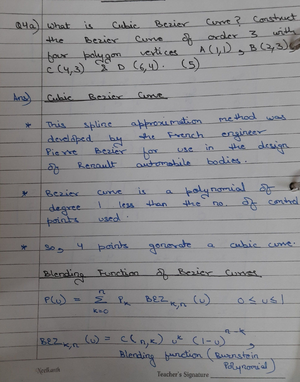 Q4a) What is Cubic Bezier Curve? Construct
the Bezier Curve of order 3 with
four polygon vertices A(1,1), B(2,3),
C(4,3) & D(6,4). (5)
Ans) Cubic Bezier Curve
* This spline approximation method was
developed by the French engineer
Pierre Bezier for use in the design
of Renault automobile bodies.
* Bezier curve is a polynomial of
degree 1 less than the no. of control
points used.
* So, 4 points generate a cubic curve.
Blending Function of Bezier Curves
P(u) = n Σ k=0 Pk BEZ k,n (u) 0 ≤ u ≤ 1
BEZ k,n (u) = C(n,k) u^k (1-u)^n-k
Blending function (Bernstein
Polynomial)
Teacher's Signature